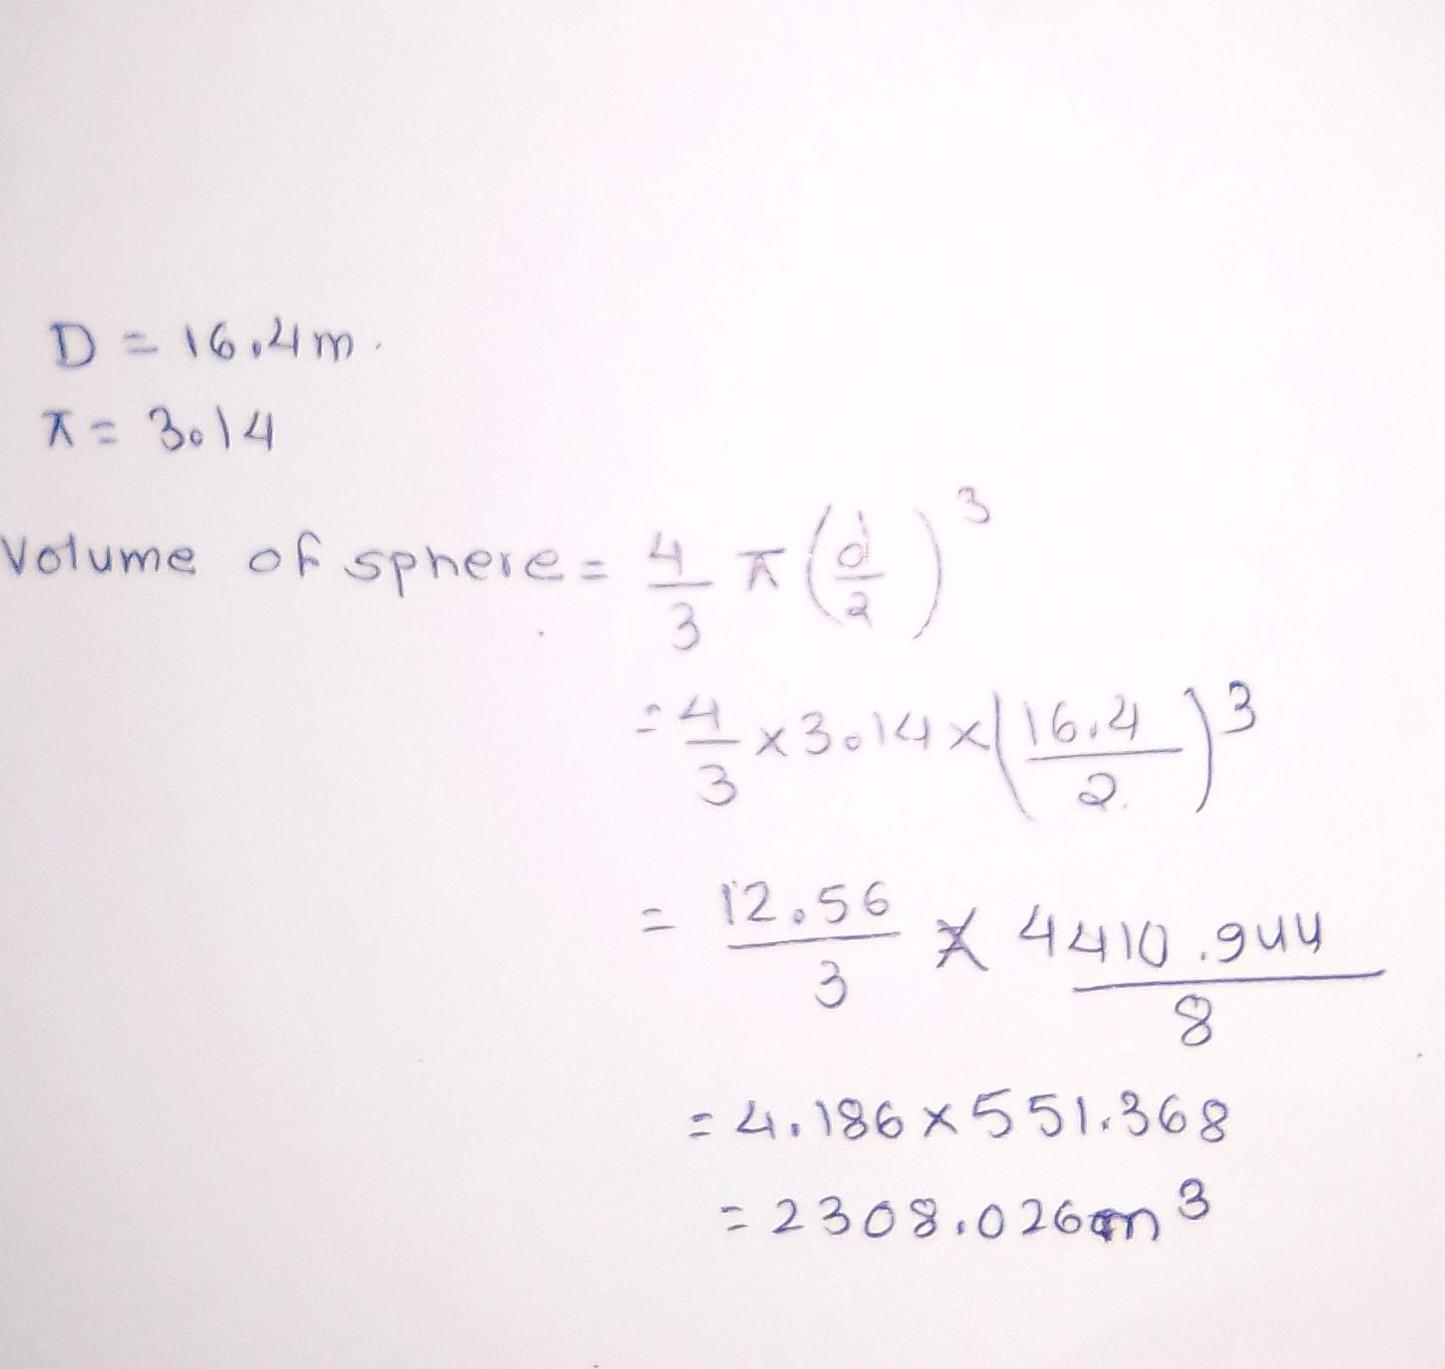 D = 16.4m.
π = 3.14
Volume of sphere = 4/3 π (d/2)^3
= 4/3 × 3.14 × (16.4/2.)^3
= 12.56/3 × 4410.944/8
= 4.186 × 551.368
= 2308.026m^3